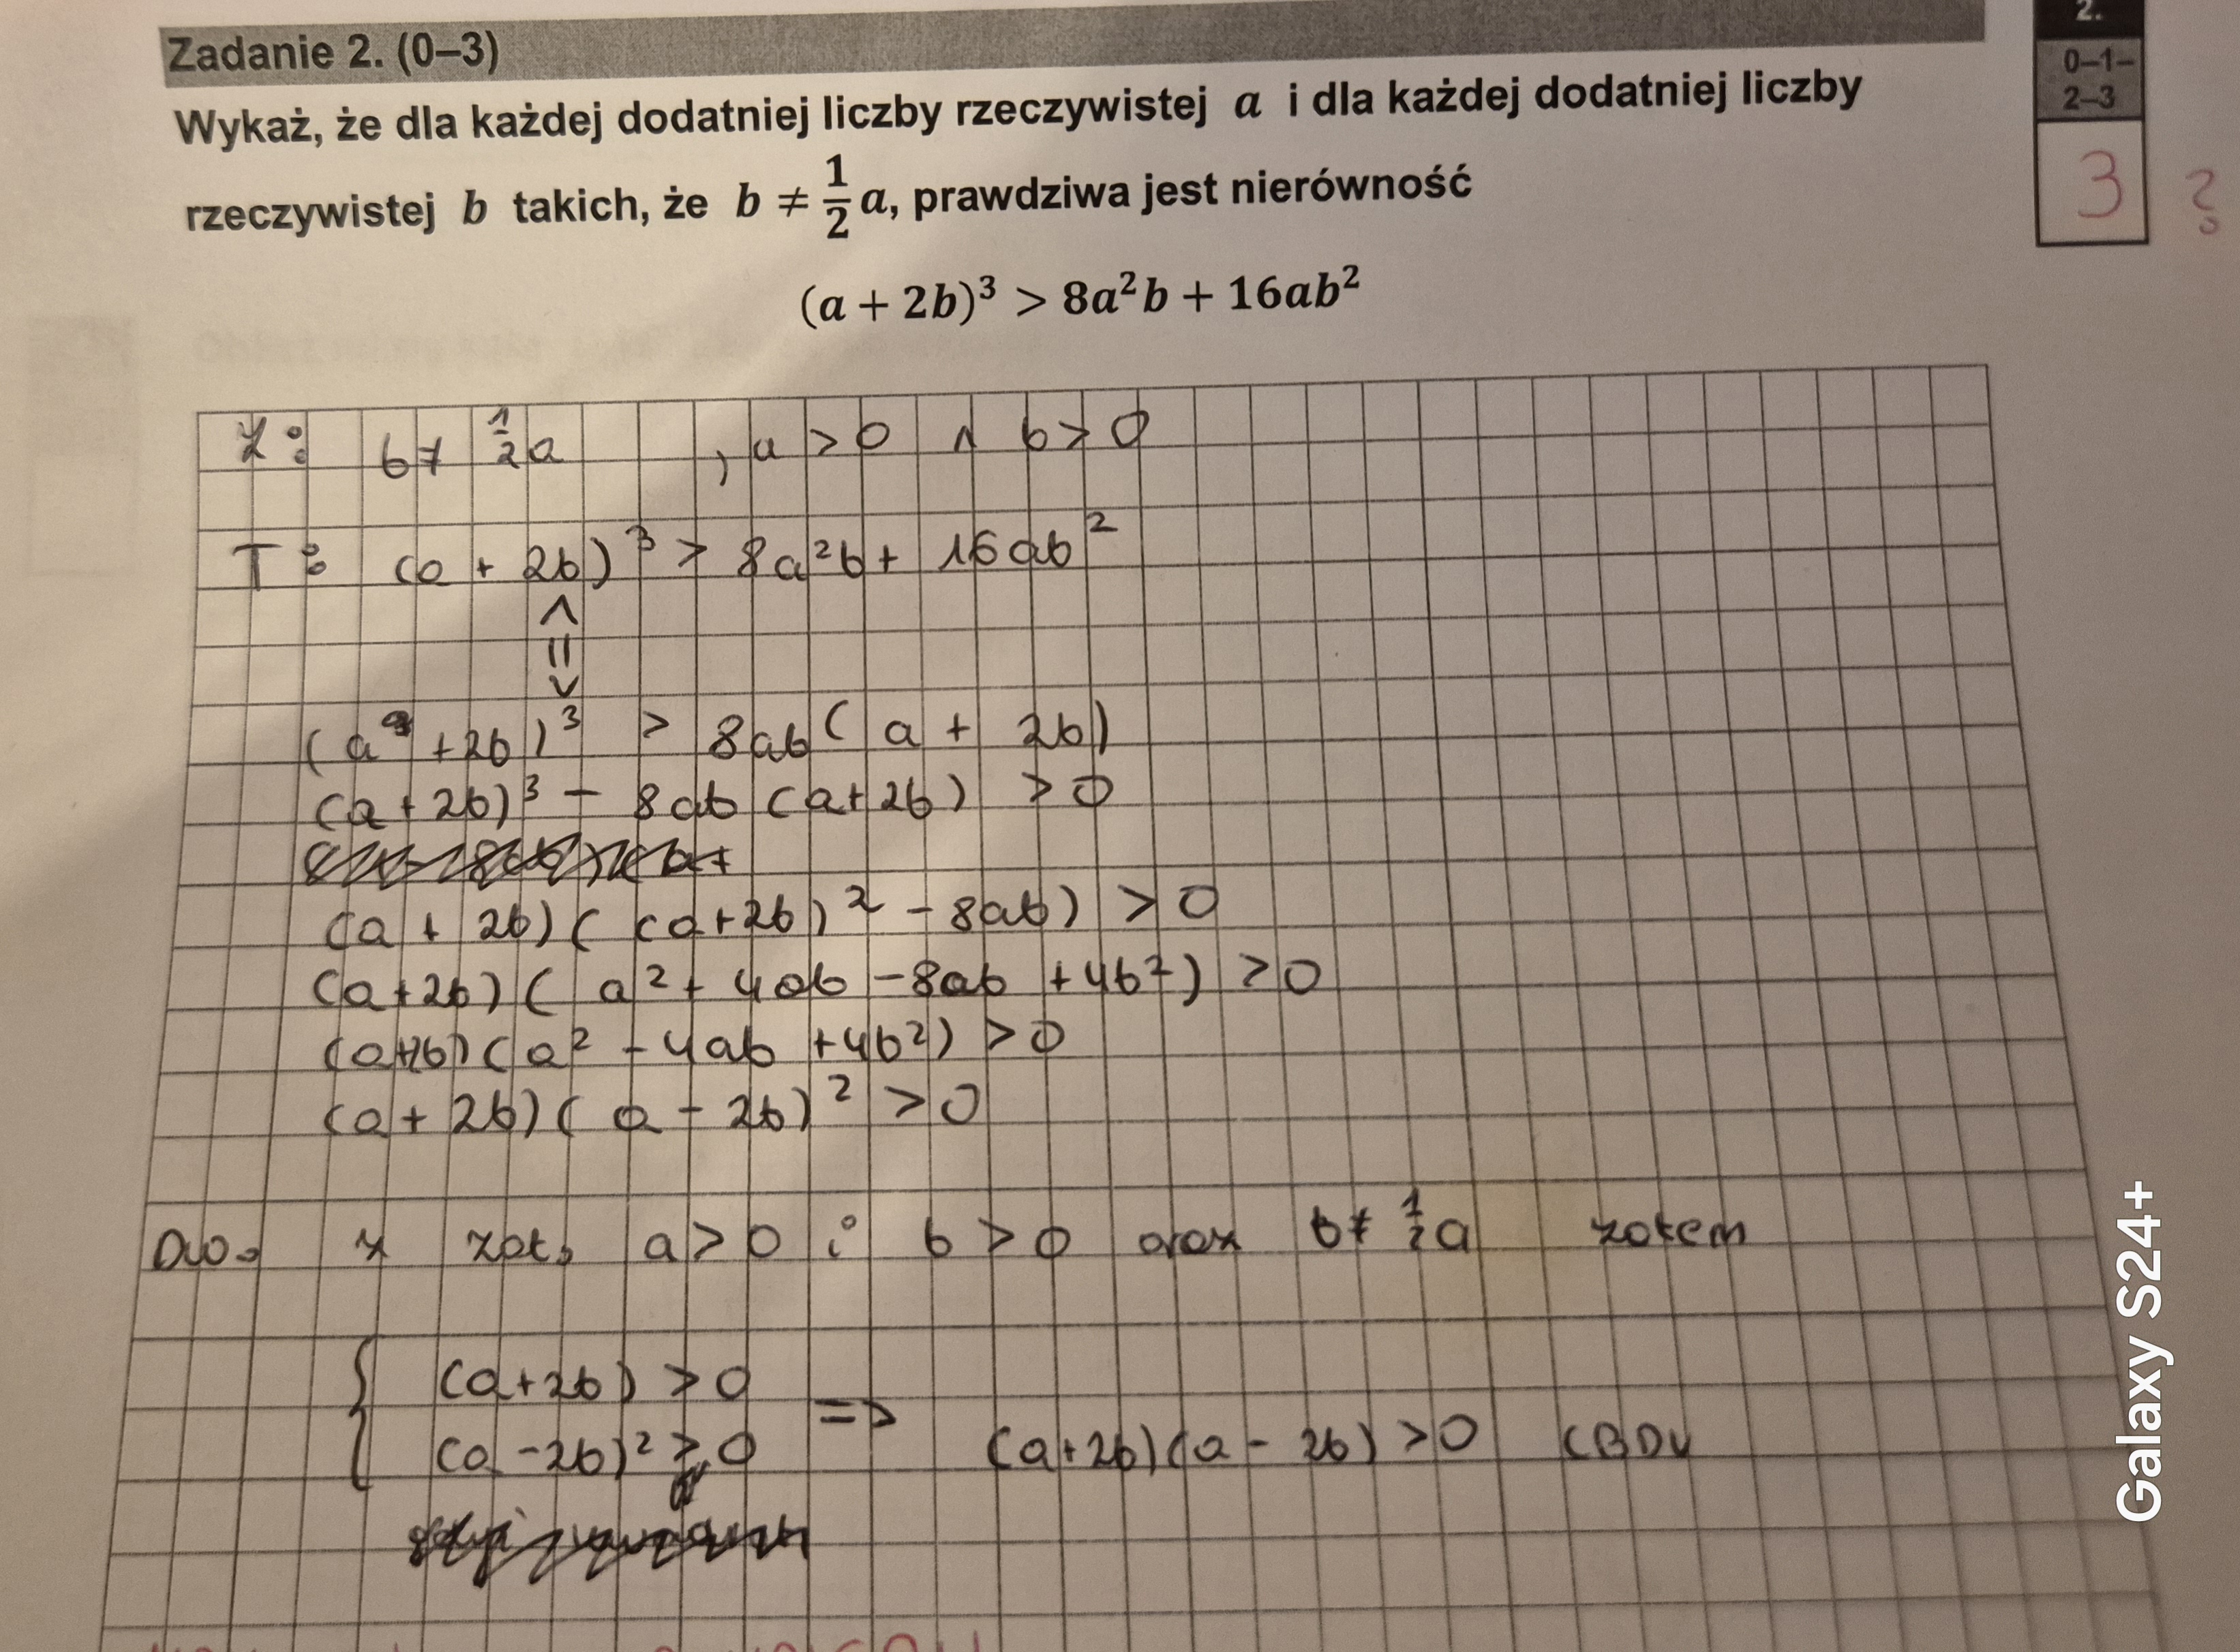 Zadanie 2. (0–3)
2.
0–1–
2–3
3 ?
Wykaż, że dla każdej dodatniej liczby rzeczywistej a i dla każdej dodatniej liczby
rzeczywistej b takich, że b ≠ 1/2 a, prawdziwa jest nierówność
(a + 2b)³ > 8a²b + 16ab²
Z: b ≠ 1/2 a , a > 0 ∧ b > 0
T: (a + 2b)³ > 8a²b + 16ab²
<=>
(a + 2b)³ > 8ab(a + 2b)
(a + 2b)³ − 8ab(a + 2b) > 0
(a + 2b)((a + 2b)² − 8ab) > 0
(a + 2b)(a² + 4ab − 8ab + 4b²) > 0
(a + 2b)(a² − 4ab + 4b²) > 0
(a + 2b)(a − 2b)² > 0
z zał. a > 0 i b > 0 oraz b ≠ 1/2 a zatem
{ (a + 2b) > 0
(a − 2b)² > 0
=> (a + 2b)(a − 2b) > 0 CBDU
Galaxy S24+